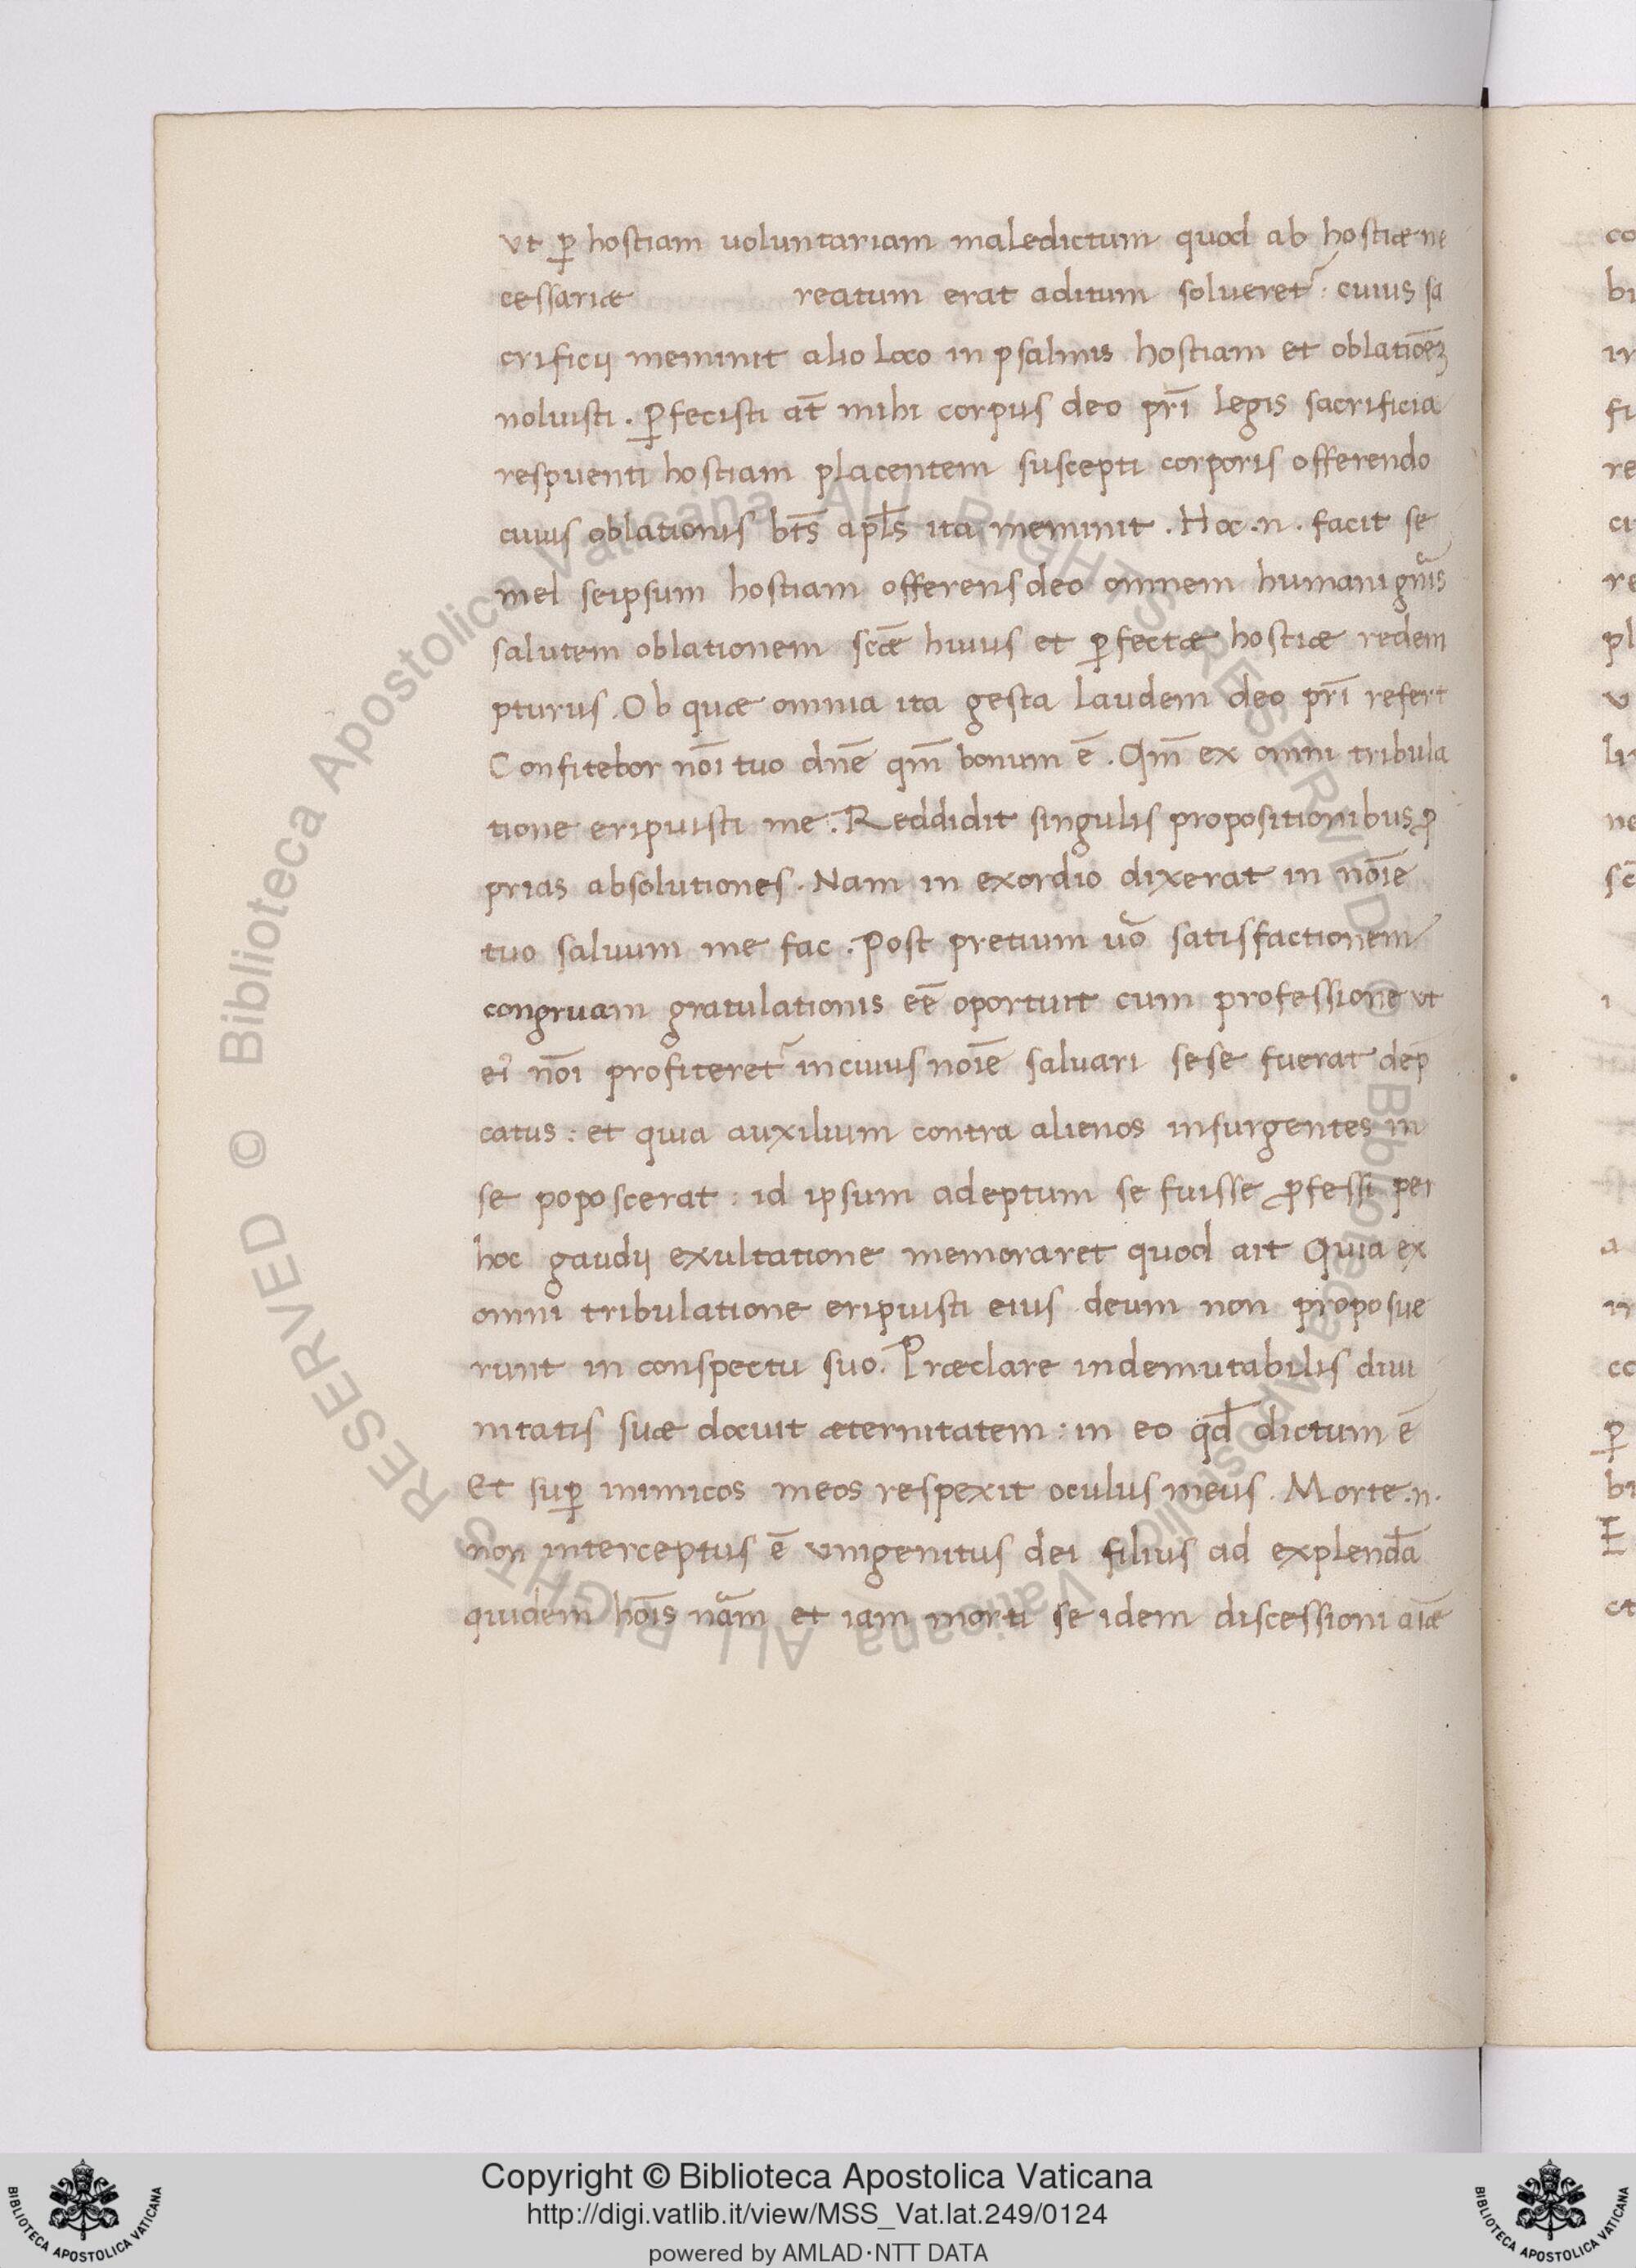 ut ꝑ hostiam uoluntariam maledictum quod ab hostiæ ne
cessariæ reatum erat aditum solueret᷑: cuius sa
crificij meminit alio loco in psalmis hostiam et oblatiōeꝫ
noluisti. ꝑfecisti at̄ mihi corpus deo pr̄i legis sacrificia
respuenti hostiam placentem suscepti corporis offerendo
cuius oblationis bt̄s apl̄s ita meminit. Hoc .n. facit se
mel seipsum hostiam offerens deo omnem humani gn̄is
salutem oblationem scǣ huius et ꝑfectæ hostiæ redem
pturus. Ob quæ omnia ita gesta laudem deo pr̄i refert
Confitebor nōi tuo dn̄e qm̄ bonum ē. Qm̄ ex omni tribula
tione eripuisti me. Reddidit singulis propositionibus ꝓ
prias absolutiones. Nam in exordio dixerat in nōie
tuo saluum me fac. Post pretium uō satisfactionem
congruam gratulationis eē oportuit cum professione ut
ei nōi profiteret᷑ in cuius noīe saluari sese fuerat dep̄
catus: et quia auxilium contra alienos insurgentes in
se poposcerat: id ipsum adeptum se fuisse ꝓfessi per
hoc gaudij exultatione memoraret quod ait Quia ex
omni tribulatione eripuisti eius deum non proposue
runt in conspectu suo. Præclare indemutabilis diui
nitatis suæ docuit æternitatem: in eo qd̄ dictum ē
Et suꝑ inimicos meos respexit oculus meus. Morte .n.
non interceptus ē unigenitus dei filius ad explendā
quidem hōis nām et iam morti se idem discessioni aiǣ
Copyright © Biblioteca Apostolica Vaticana
http://digi.vatlib.it/view/MSS_Vat.lat.249/0124
powered by AMLAD·NTT DATA
BIBLIOTECA APOSTOLICA VATICANA
BIBLIOTECA APOSTOLICA VATICANA